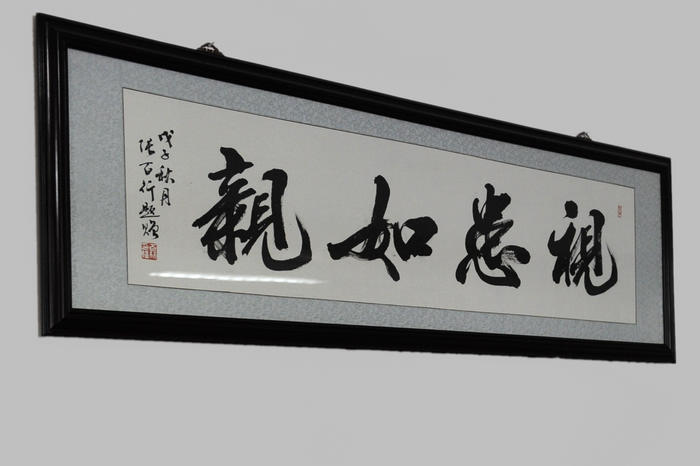 視患如親
戊子秋月
張百行題贈